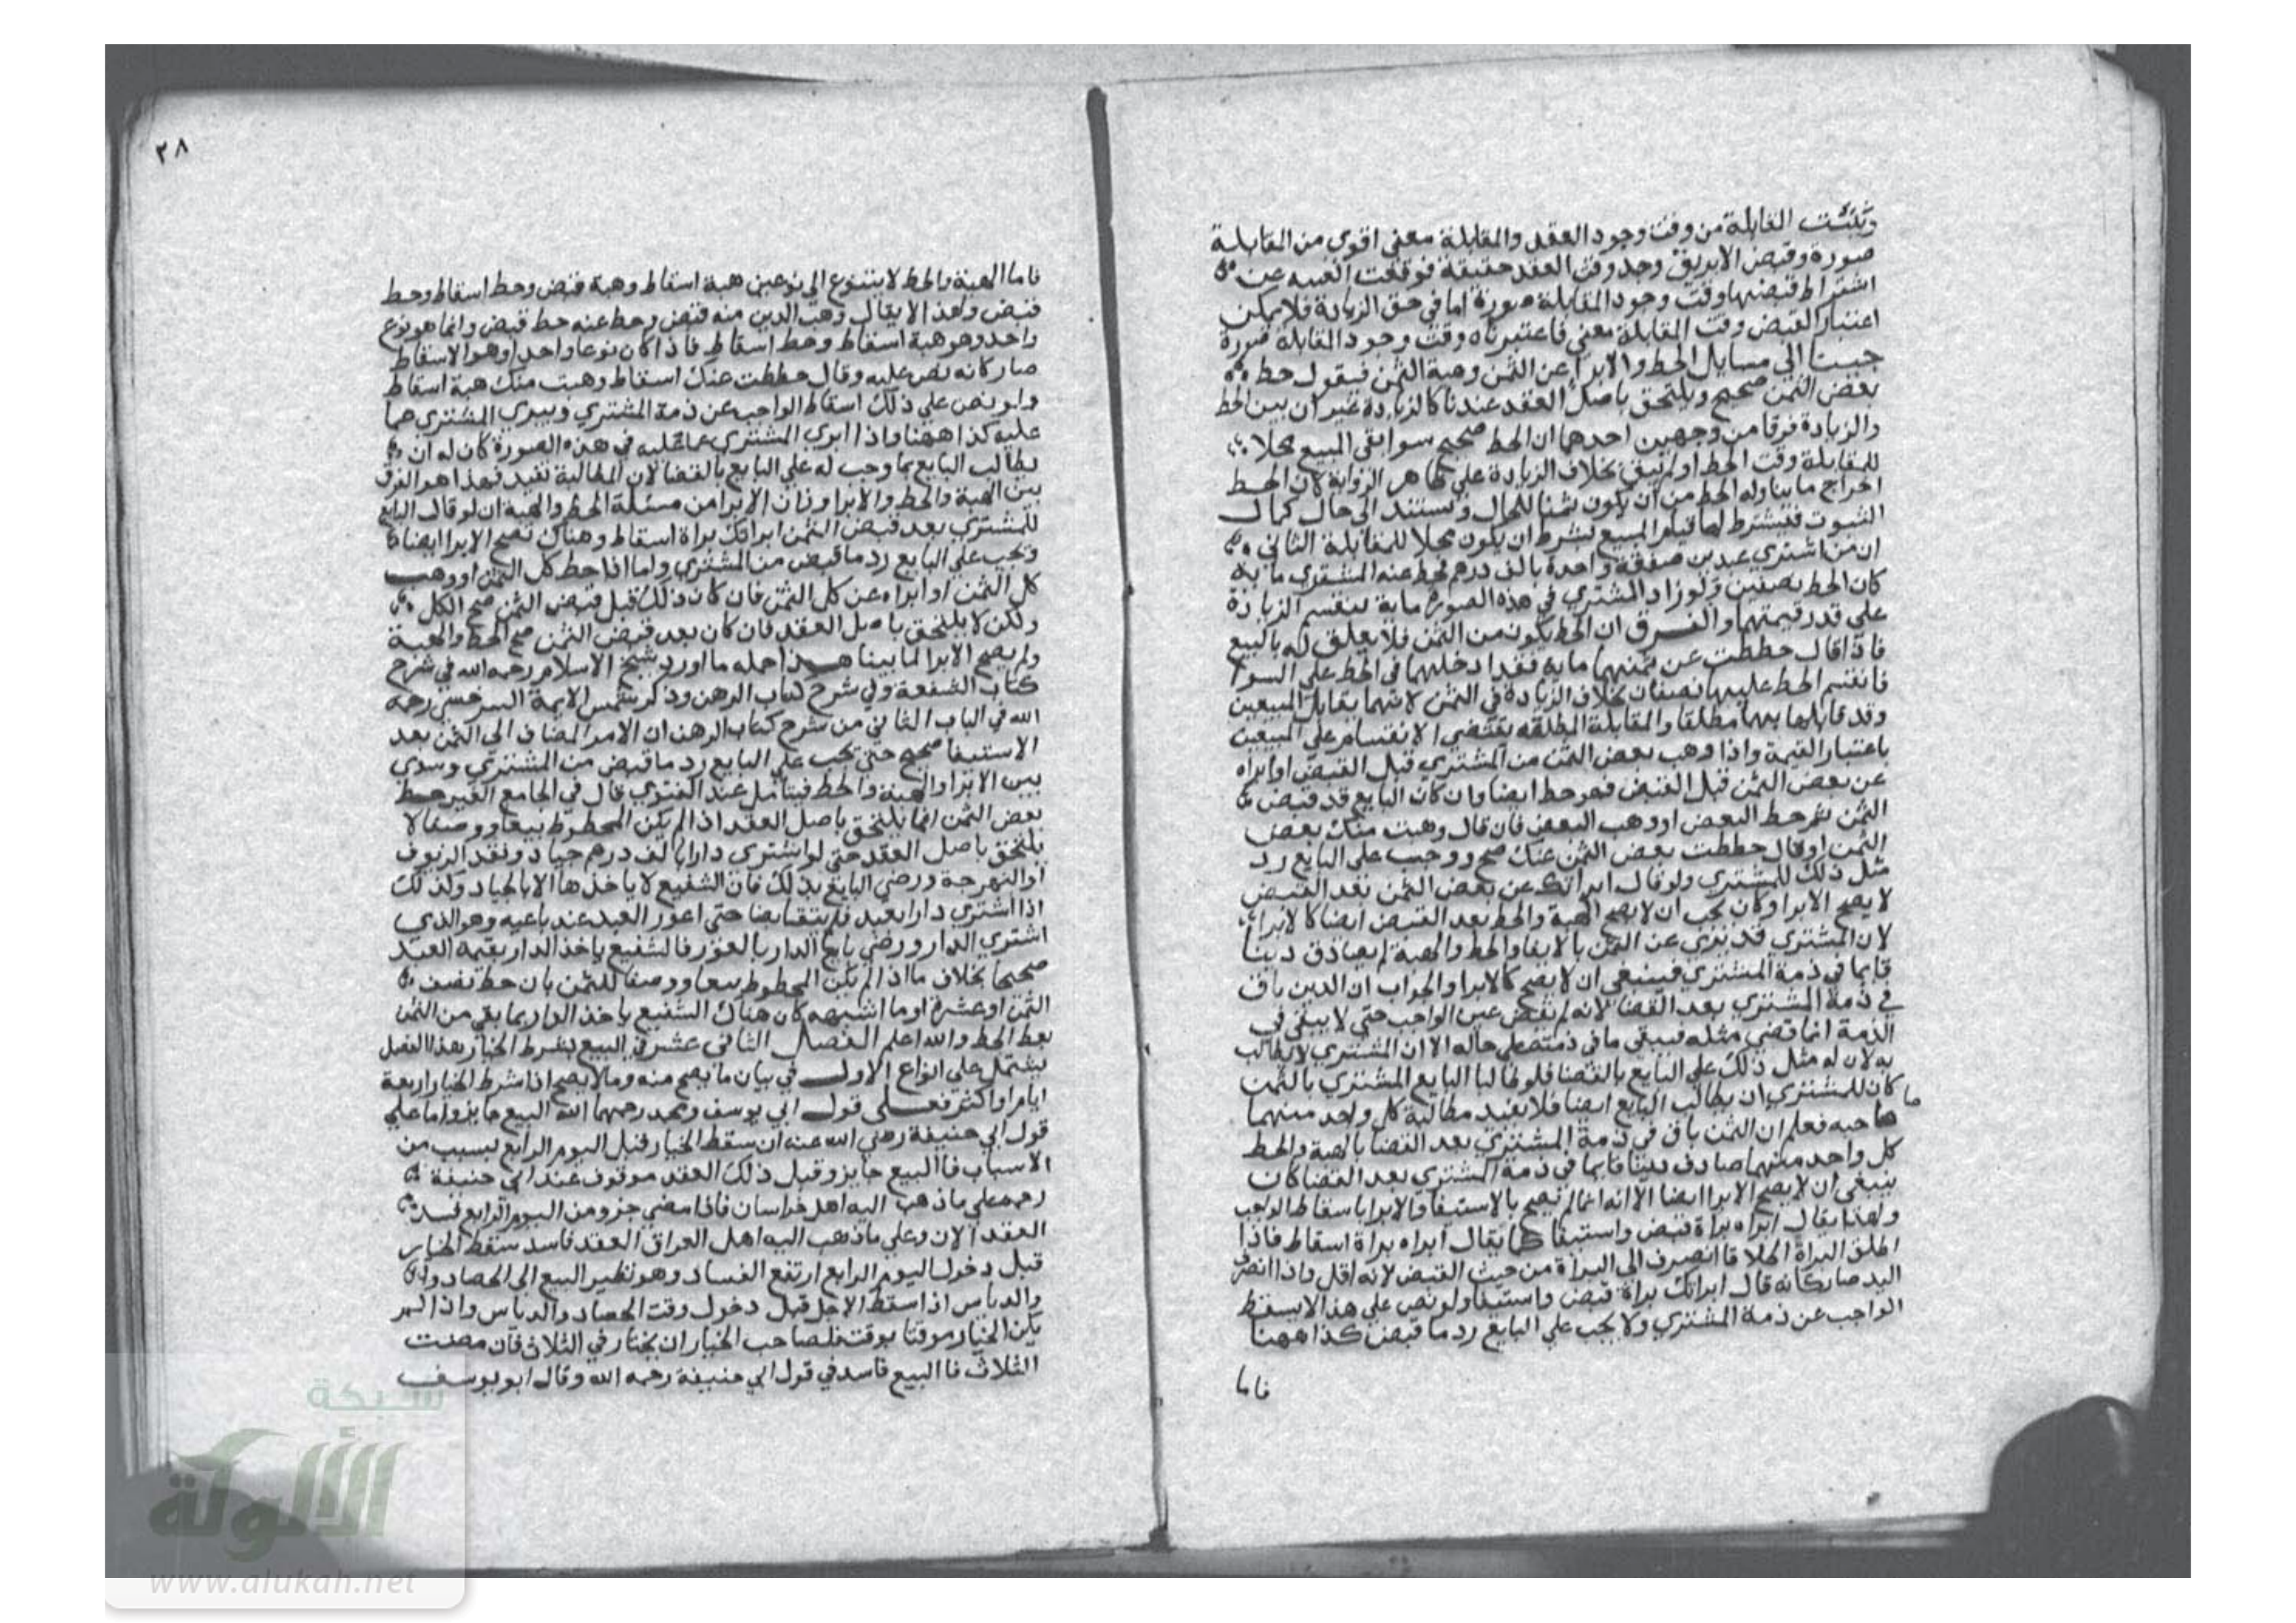 وتثبت المقابلة من وقت وجود العقد والمقابلة معنى اقوى من المقابلة
صورة وقبض الابريق وجد وقت العقد حقيقة فوقعت الغنية عن
اشتراط قبضها وقت وجود المقابلة صورة اما في حق الزيادة فلا يمكن
اعتبار القبض وقت المقابلة معنى فاعتبرناه وقت وجود المقابلة صورة
جينا الى مسايل الحط والابرا عن الثمن وهبة الثمن فيقول حط
بعض الثمن صحيح ويلتحق باصل العقد عندنا كالزيادة غير ان بين الحط
والزيادة فرقا من وجهين احدهما ان الحط صحيح سوا بقي المبيع محلا
للمقابلة وقت الحط او لم يبق بخلاف الزيادة على ظاهر الرواية كان الحط
اخراج ما يناوله الحط من ان يكون ثمنا للحال ويستند الى حال كمال
الثبوت فيشترط لها قيام المبيع بشرط ان يكون محلا للمقابلة الثاني
ان من اشترى عبدين صفقة واحدة بالف درهم فحط عنه المشتري ماية
كان الحط نصفين ولو زاد المشتري في هذه الصورة ماية تنقسم الزيادة
على قدر قيمتهما والفرق ان الحط يكون من الثمن فلا تعلق له بالمبيع
فاذا قال حططت عن ثمنهما ماية فقد ادخلهما في الحط على السوا
فانقسم الحط عليهما نصفان بخلاف الزيادة في الثمن لانهما تقابل المبيعين
وقد قابلها بهما مطلقا والمقابلة المطلقة تقتضي الانقسام على المبيعين
باعتبار القيمة واذا وهب بعض الثمن من المشتري قبل القبض او ابراه
عن بعض الثمن قبل القبض فهو حط ايضا وان كان البايع قد قبض
الثمن ثم حط البعض او وهب البعض فان قال وهبت منك بعض
الثمن او قال حططت بعض الثمن عنك صح ووجب على البايع رد
مثل ذلك للمشتري ولو قال ابراتك عن بعض الثمن بعد القبض
لا يصح الابرا وكان يجب ان لا يصح الهبة والحط بعد القبض ايضا كالابرا
لان المشتري قد بري عن الثمن بالايفا والحط والهبة لم يصادف دينا
قايما في ذمة المشتري فينبغي ان لا يصح كالابرا والجواب ان الدين باق
في ذمة المشتري بعد القضا لانه لم يقض عين الواجب حتى لا يبقى في
الذمة انما قضى مثله فيبقى ما في ذمته على حاله الا ان المشتري لا يطالب
به لان له مثل ذلك على البايع بالقضا فلو طالبا البايع المشتري بالثمن
كان للمشتري ان يطالب البايع ايضا فلا يفيد مطالبة كل واحد منهما ما
صاحبه فعلم ان الثمن باق في ذمة المشتري بعد القضا بالهبة والحط
كل واحد منهما صادف دينا قايما في ذمة المشتري بعد القضا كان
ينبغي ان لا يصح الابرا ايضا الا انه انما لم يصح بالاستيفا والابرا باسقاط الواجب
ولهذا يقال ابراه براة قبض واستيفا كما يقال ابراه براة اسقاط فاذا
اطلق البراة اطلاقا انصرف الى البراة من حيث القبض لانه اقل واذا انصرف
اليه صار كانه قال ابراتك براة قبض واستيفا ولو نص على هذا لا يسقط
الواجب عن ذمة المشتري ولا يجب على البايع رد ما قبض كذا ههنا
فاما
٢٨
فاما الهبة والحط لا يتنوع الى نوعين هبة اسقاط وهبة قبض وحط اسقاط وحط
قبض ولهذا لا يقال وهب الدين منه قبض وحط عنه حط قبض وانما هو نوع
واحد وهو هبة اسقاط وحط اسقاط فاذا كان نوعا واحدا وهو الاسقاط
صار كانه نص عليه وقال حططت عنك اسقاط وهبت منك هبة اسقاط
ولو نص على ذلك اسقاط الواجب عن ذمة المشتري ويبري المشتري عما
عليه كذا ههنا واذا ابري المشتري عما عليه في هذه الصورة كان له ان
يطالب البايع بما وجب له على البايع بالقضا لان المطالبة تفيد فهذا هو الفرق
بين الهبة والحط والابرا وزان الابرا من مسئلة الحط والهبة ان لو قال البايع
للمشتري بعد قبض الثمن ابراتك براة اسقاط وهناك تصح الابرا ايضا
ويجب على البايع رد ما قبض من المشتري واما اذا حط كل الثمن او وهب
كل الثمن او ابراه عن كل الثمن فان كان ذلك قبل قبض الثمن صح الكل
ولكن لا يلتحق باصل العقد فان كان بعد قبض الثمن صح الحط والهبة
ولم يصح الابرا لما بينا هذا جمله ما اورد شيخ الاسلام رحمه الله في شرح
كتاب الشفعة وفي شرح كتاب الرهن وذكر شمس الايمة السرخسي رحمه
الله في الباب الثاني من شرح كتاب الرهن ان الامر المضاف الى الثمن بعد
الاستيفا صحيح حتى يجب على البايع رد ما قبض من المشتري وسوى
بين الابرا والهبة والحط فيتامل عند الفتوى قال في الجامع الغير حط
بعض الثمن انما يلتحق باصل العقد اذا لم يكن المحطوط تبيعا ووصفا لا
يلتحق باصل العقد حتى لو اشترى دارا بالف درهم جياد ونقد الزيوف
او النبهرجة ورضي البايع بذلك فان الشفيع لا ياخذها الا بالجياد وكذلك
اذا اشترى دارا بعبد فلم يتقابضا حتى اعور العبد عند بايعه وهو الذي
اشترى الدار ورضي بايع الدار بالعور فالشفيع ياخذ الدار بقيمة العبد
صحيحا بخلاف ما اذا لم يكن المحطوط تبيعا ووصفا للثمن بان حط نصف
الثمن او عشرة او ما اشبهه كان هناك الشفيع ياخذ الدار بما بقي من الثمن
بعد الحط والله اعلم الفصل الثاني عشر في البيع بشرط الخيار هذا الفصل
يشتمل على انواع الاول في بيان ما يصح منه وما لا يصح اذا شرط الخيار اربعة
ايام او اكثر فعلى قول ابي يوسف ومحمد رحمهما الله البيع جايز واما على
قول ابي حنيفة رضي الله عنه ان سقط الخيار قبل اليوم الرابع بسبب من
الاسباب فالبيع جايز وقبل ذلك العقد موقوف عند ابي حنيفة
رحمه على ما ذهب اليه اهل خراسان فاذا مضى جزو من اليوم الرابع فسد
العقد الان وعلى ما ذهب اليه اهل العراق العقد فاسد سقط الخيار
قبل دخول اليوم الرابع ارتفع الفساد وهو نظير البيع الى الحصاد
والدياس اذا سقط الاجل قبل دخول وقت الحصاد والدياس واذا لم
يكن الخيار موقتا بوقت فلصاحب الخيار ان يختار في الثلاث فان مضت
الثلاث فالبيع فاسد في قول ابي حنيفة رحمه الله وقال ابو يوسف
شبكة
الألوكة
www.alukah.net